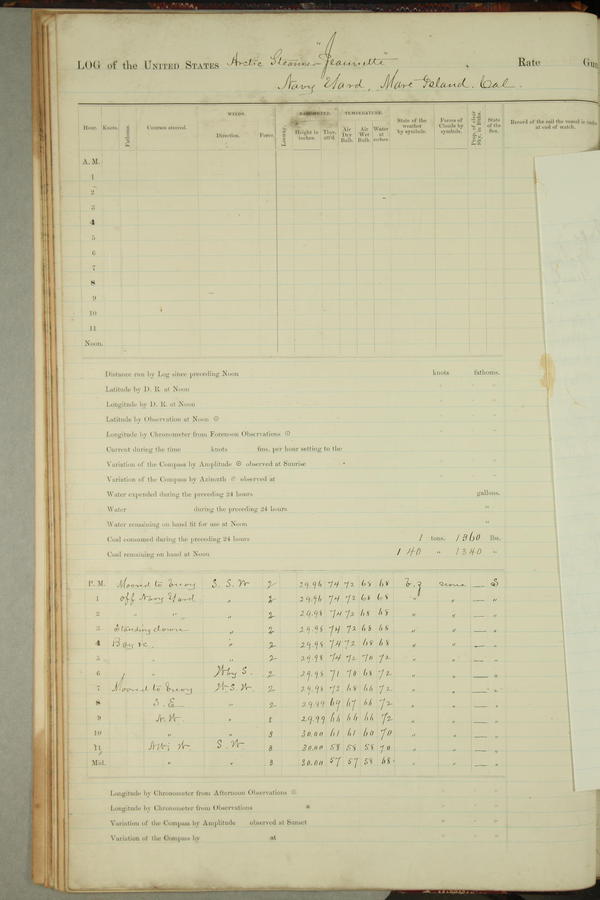 LOG of the UNITED STATES Arctic Steamer "Jeannette" Rate Gun
Navy Yard, Mare Island. Cal.
Hour. Knots. Fathoms. Courses steered. WINDS. Direction. Force. Leeway. BAROMETER. Height in inches. Ther. att'd. TEMPERATURE. Air Dry Bulb. Air Wet Bulb. Water at surface. State of the weather by symbols. Forms of Clouds by symbols. Prop. of clear Sky, in 10ths. State of the Sea. Record of the sail the vessel is under at end of watch.
A. M.
1
2
3
4
5
6
7
8
9
10
11
Noon.
Distance run by Log since preceding Noon knots fathoms.
Latitude by D. R. at Noon
Longitude by D. R. at Noon
Latitude by Observation at Noon
Longitude by Chronometer from Forenoon Observations
Current during the time knots fms. per hour setting to the
Variation of the Compass by Amplitude observed at Sunrise
Variation of the Compass by Azimuth observed at
Water expended during the preceding 24 hours gallons.
Water during the preceding 24 hours "
Water remaining on hand fit for use at Noon "
Coal consumed during the preceding 24 hours 1 tons. 1960 lbs.
Coal remaining on hand at Noon 140 " 1340 "
P. M. Moored to Buoy S. S. W 2 29.96 74 72 68 68 none — S
1 off Navy Yard " 2 29.96 74 72 68 68 " " — "
2 " " " 2 29.98 74 72 68 68 " " — "
3 Standing down " 2 29.98 74 72 68 68 " " — "
4 Bay &c. " 2 29.98 74 72 68 68 " " — "
5 " " 2 29.98 74 72 70 72 " " — "
6 " W by S. 2 29.98 71 70 68 72 " " — "
7 Moored to Buoy W. S. W. 2 29.98 72 68 66 72 " " — "
8 S. E " 2 29.99 69 67 66 72 " " — "
9 N. W. " 3 29.99 66 66 66 72 " " — "
10 " " 3 30.00 61 61 60 70 " " — "
11 S. W 3 30.00 58 58 58 70 " " — "
Mid. " " 3 30.00 57 57 58 68 " " — "
Longitude by Chronometer from Afternoon Observations
Longitude by Chronometer from Observations
Variation of the Compass by Amplitude observed at Sunset
Variation of the Compass by at